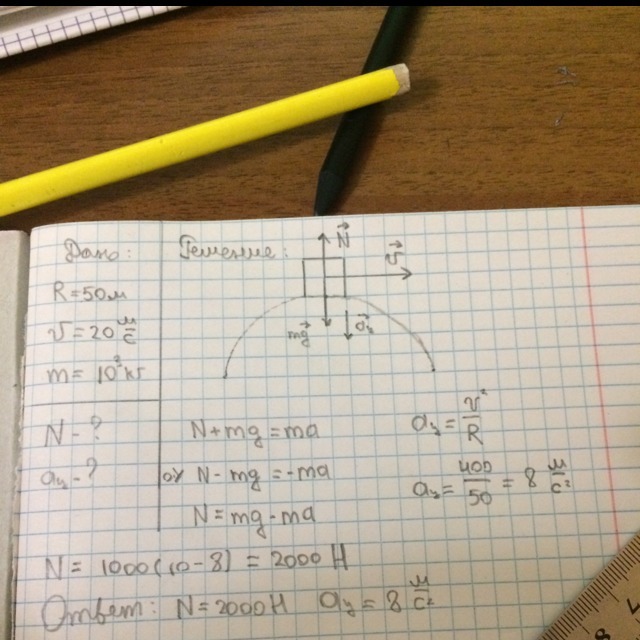 Дано:
R=50м
v=20 м/с
m=10³кг
N-?
aц-?
Решение:
N
v
mg
aц
N+mg=ma
oy N-mg=-ma
N=mg-ma
aц=v²/R
aц=400/50=8 м/с²
N=1000(10-8)=2000 Н
Ответ: N=2000Н aц=8 м/с²
8